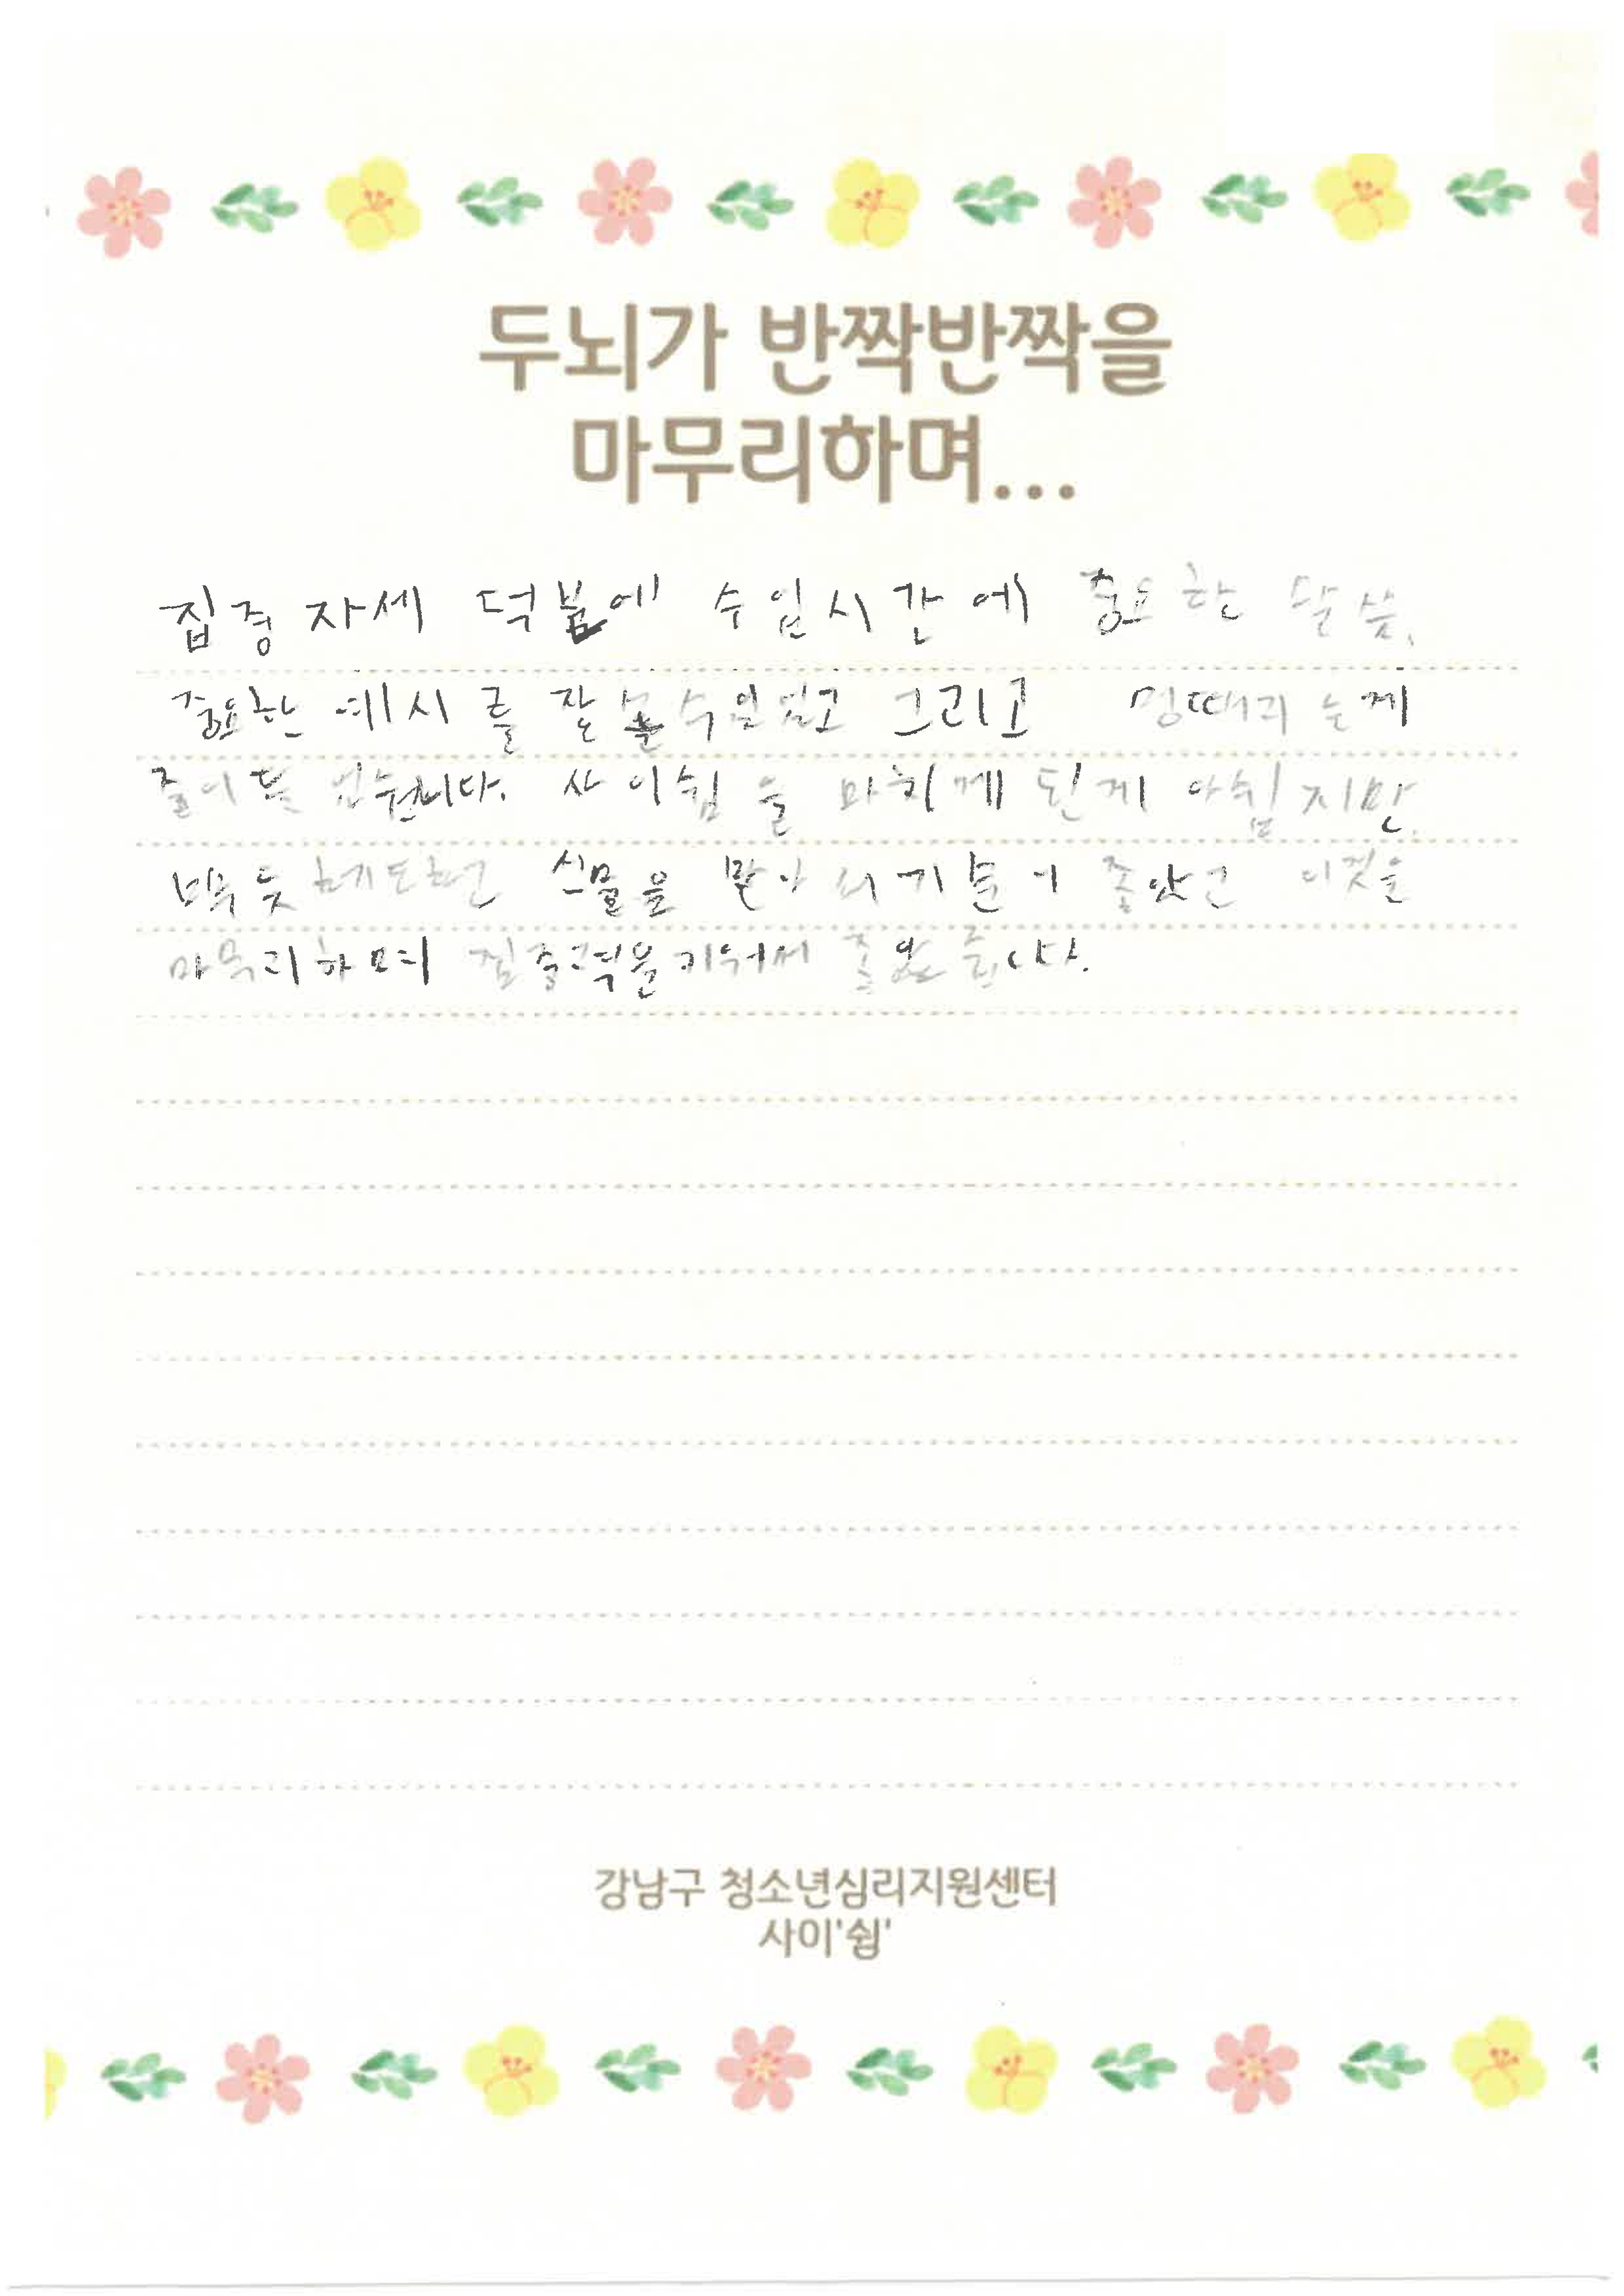 두뇌가 반짝반짝을
마무리하며...
집중 자세 덕붐에 수업시간에 중요한 말씀,
중요한 예시를 잘 수있었고 그리고 멍때리는게
줄어 사이쉼을 마치게 된게 아쉽지만
뿌듯 선물을 받아서 기분이 좋았고 이것을
마무리하며 집중력을 키워서
강남구 청소년심리지원센터
사이'쉼'